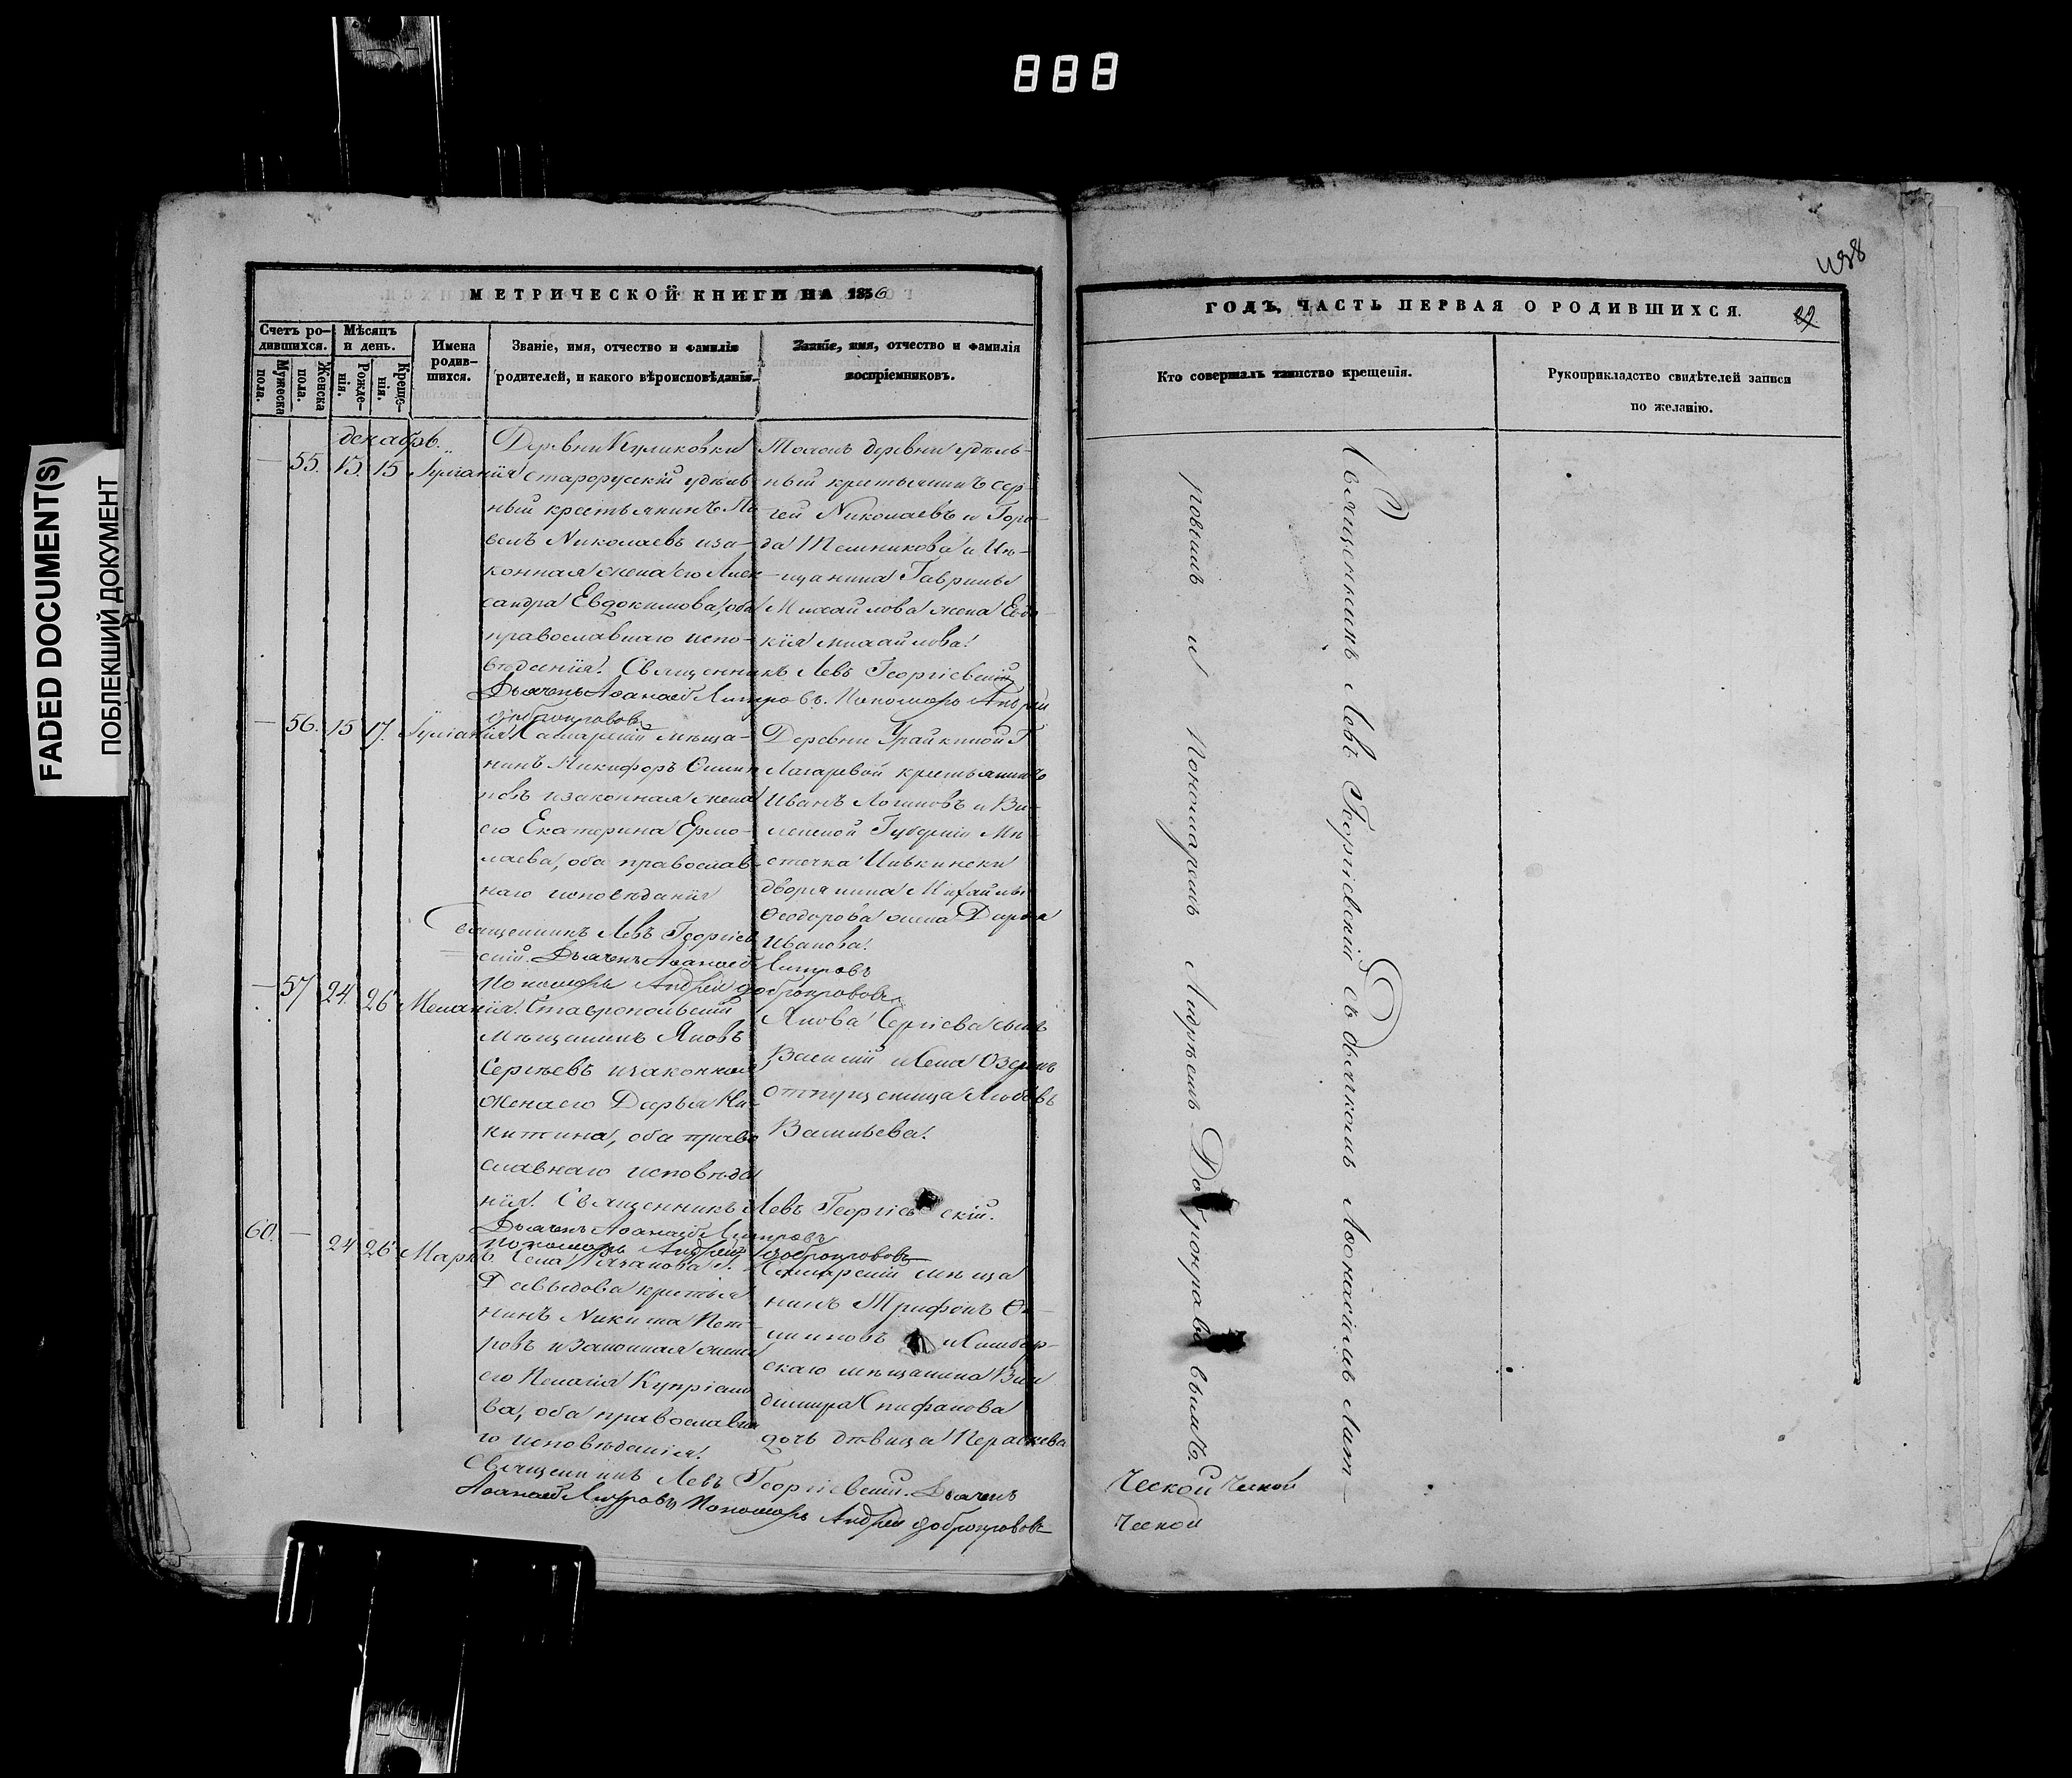 888
FADED DOCUMENT(S)
ПОБЛЕКШИЙ ДОКУМЕНТ
МЕТРИЧЕСКОЙ КНИГИ НА 1856
Счетъ ро-
дившихся.
Мѣсяцъ
и день.
Мужеска
пола.
Женска
пола.
Рожде-
нія.
Креще-
нія.
Имена
родив-
шихся.
Званіе, имя, отчество и фамилія
родителей, и какого вѣроисповѣданія.
Званіе, имя, отчество и фамилія
воспріемниковъ.
декабрь.
55. 15. 15 Іуліанія
Деревни Куликовки
Старорускій удѣль
ный крестьянинъ Па
велъ Николаевъ иза-
конная жена его Алек
сандра Евдокимова, оба
православнаго испо-
вѣданія. Священникъ Левъ Георгіевскій
Дьячекъ Аѳанасій Литровъ. Пономарь Андрей
Добронравовъ
Тоежъ деревни удѣль-
ный крестьянинъ Сер-
гей Николаевъ и Горо-
да Темникова
щанина Гаврилы
Михайлова жена Евдо-
кія Михайлова.
56. 15 17. Іуліанія
Самарскій мѣща-
нинъ Никифоръ
новъ изаконная жена
его Екатерина Ермо-
лаева, оба православ-
наго исповѣданія
Священникъ Левъ Георгіев
скій. Дьячекъ Аѳанасій Литровъ
Пономарь Андрей Добронравовъ
Деревни
Лазаревой крестьянинъ
Иванъ Логиновъ и Ви-
ленской Губерніи Мѣ
стечка
дворянина Михайлы
Ѳеодорова жена Дарья
Иванова.
57 24. 26 Меланія.
Ставропольскій
мѣщанинъ Яковъ
Сергѣевъ изаконная
жена его Дарья Ни-
китина, оба право
славнаго исповѣда
нія. Священникъ Левъ Георгіевскій.
Дьячекъ Аѳанасій Литровъ
Пономарь Андрей Добронравовъ
Якова Сергіева сынъ
Василій и Села Озерокъ
отпущеница Любовь
Васильева.
60. — 24 26 Маркъ.
Села Рязанова г.
Давыдова крестья
нинъ Никита Пет-
ровъ изаконная жена
его Пелагія Купріано
ва, оба православна
го исповѣданія.
Священникъ Левъ Георгіевскій. Дьячекъ
Аѳанасій Литровъ Пономарь Андрей Добронравовъ
Самарскій мѣща
нинъ Трифонъ
и Симбир-
скаго мѣщанина Вла
диміра Епифанова
дочь дѣвица Параскева
438
ГОДЪ, ЧАСТЬ ПЕРВАЯ О РОДИВШИХСЯ.
22
Кто совершалъ таинство крещенія.
Рукоприкладство свидѣтелей записи
по желанію.
Священникъ Левъ Георгіевскій съ Дьячкомъ Аѳонасіемъ Лит-
ровымъ и Пономаремъ Андреемъ Добронравовымъ.
Ческой Ческой
Ческой